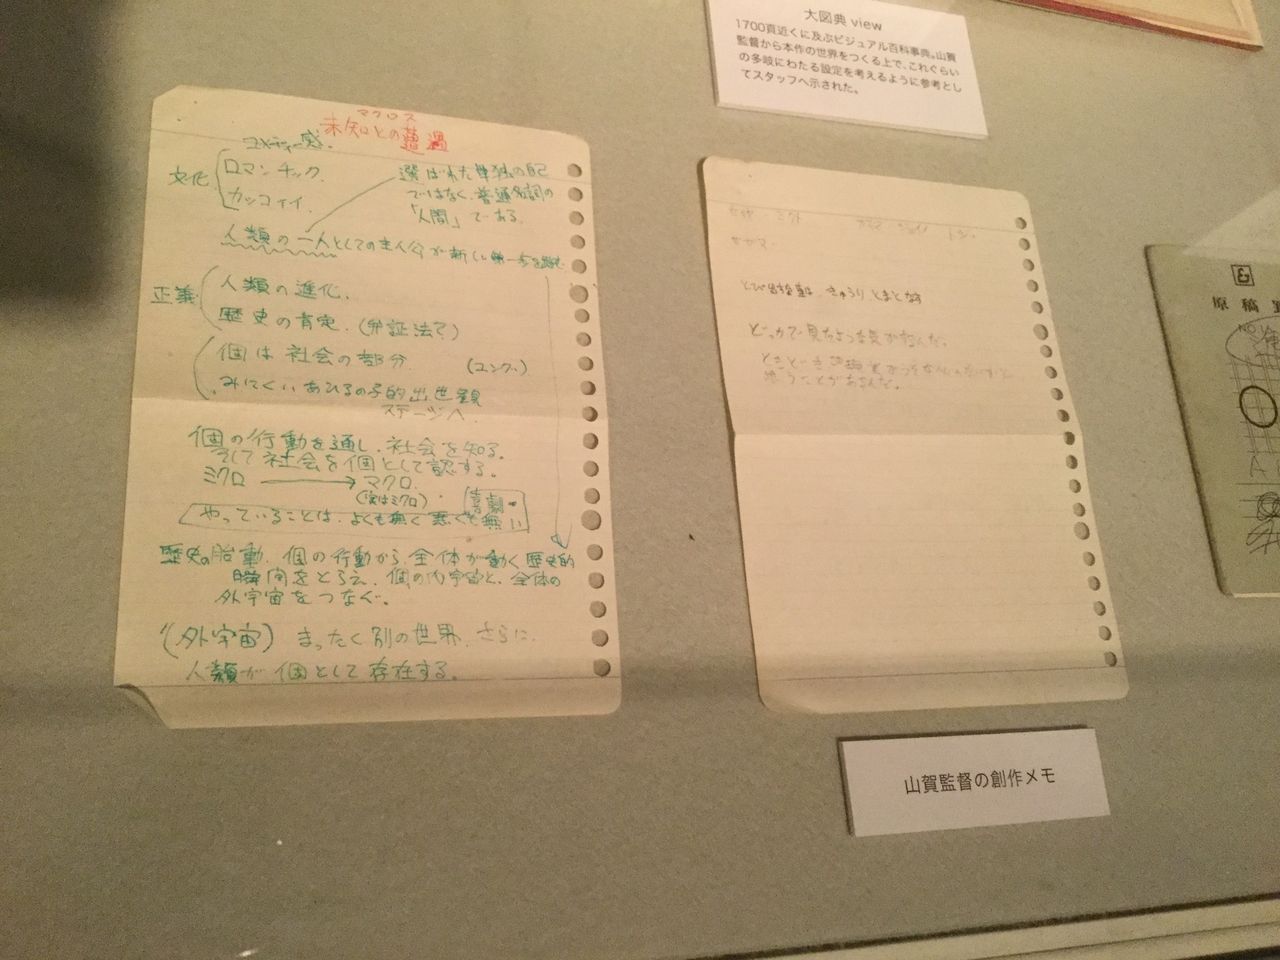 大図典 view
1700頁近くに及ぶビジュアル百科事典。山賀
監督から本作の世界をつくる上で、これぐらい
の多岐にわたる設定を考えるように参考とし
てスタッフへ示された。
マクロス
未知との遭遇
文化
ロマンチック.
カッコイイ.
選ばれた単独の自己
ではなく、普通名詞の
「人間」である.
人類の一人としての主人公が新しい第一歩を踏む
正義
人類の進化.
歴史の肯定.(弁証法?)
個は社会の部分 (ユング)
みにくいあひるの子的出世観
ステージへ
個の行動を通し、社会を知る.
そして社会を個として認する。
ミクロ → マクロ.
(実はミクロ)
喜劇
やっていることは、よくも無く悪くも無い
歴史の胎動. 個の行動から、全体が動く歴史的
瞬間をとらえ、個の内宇宙と、全体の
外宇宙をつなぐ。
(外宇宙) まったく別の世界. さらに.
人類が個として存在する。
きゅうり とまと なす
どっかで見たような気が
思うことがあるんだ。
山賀監督の創作メモ
&
原稿